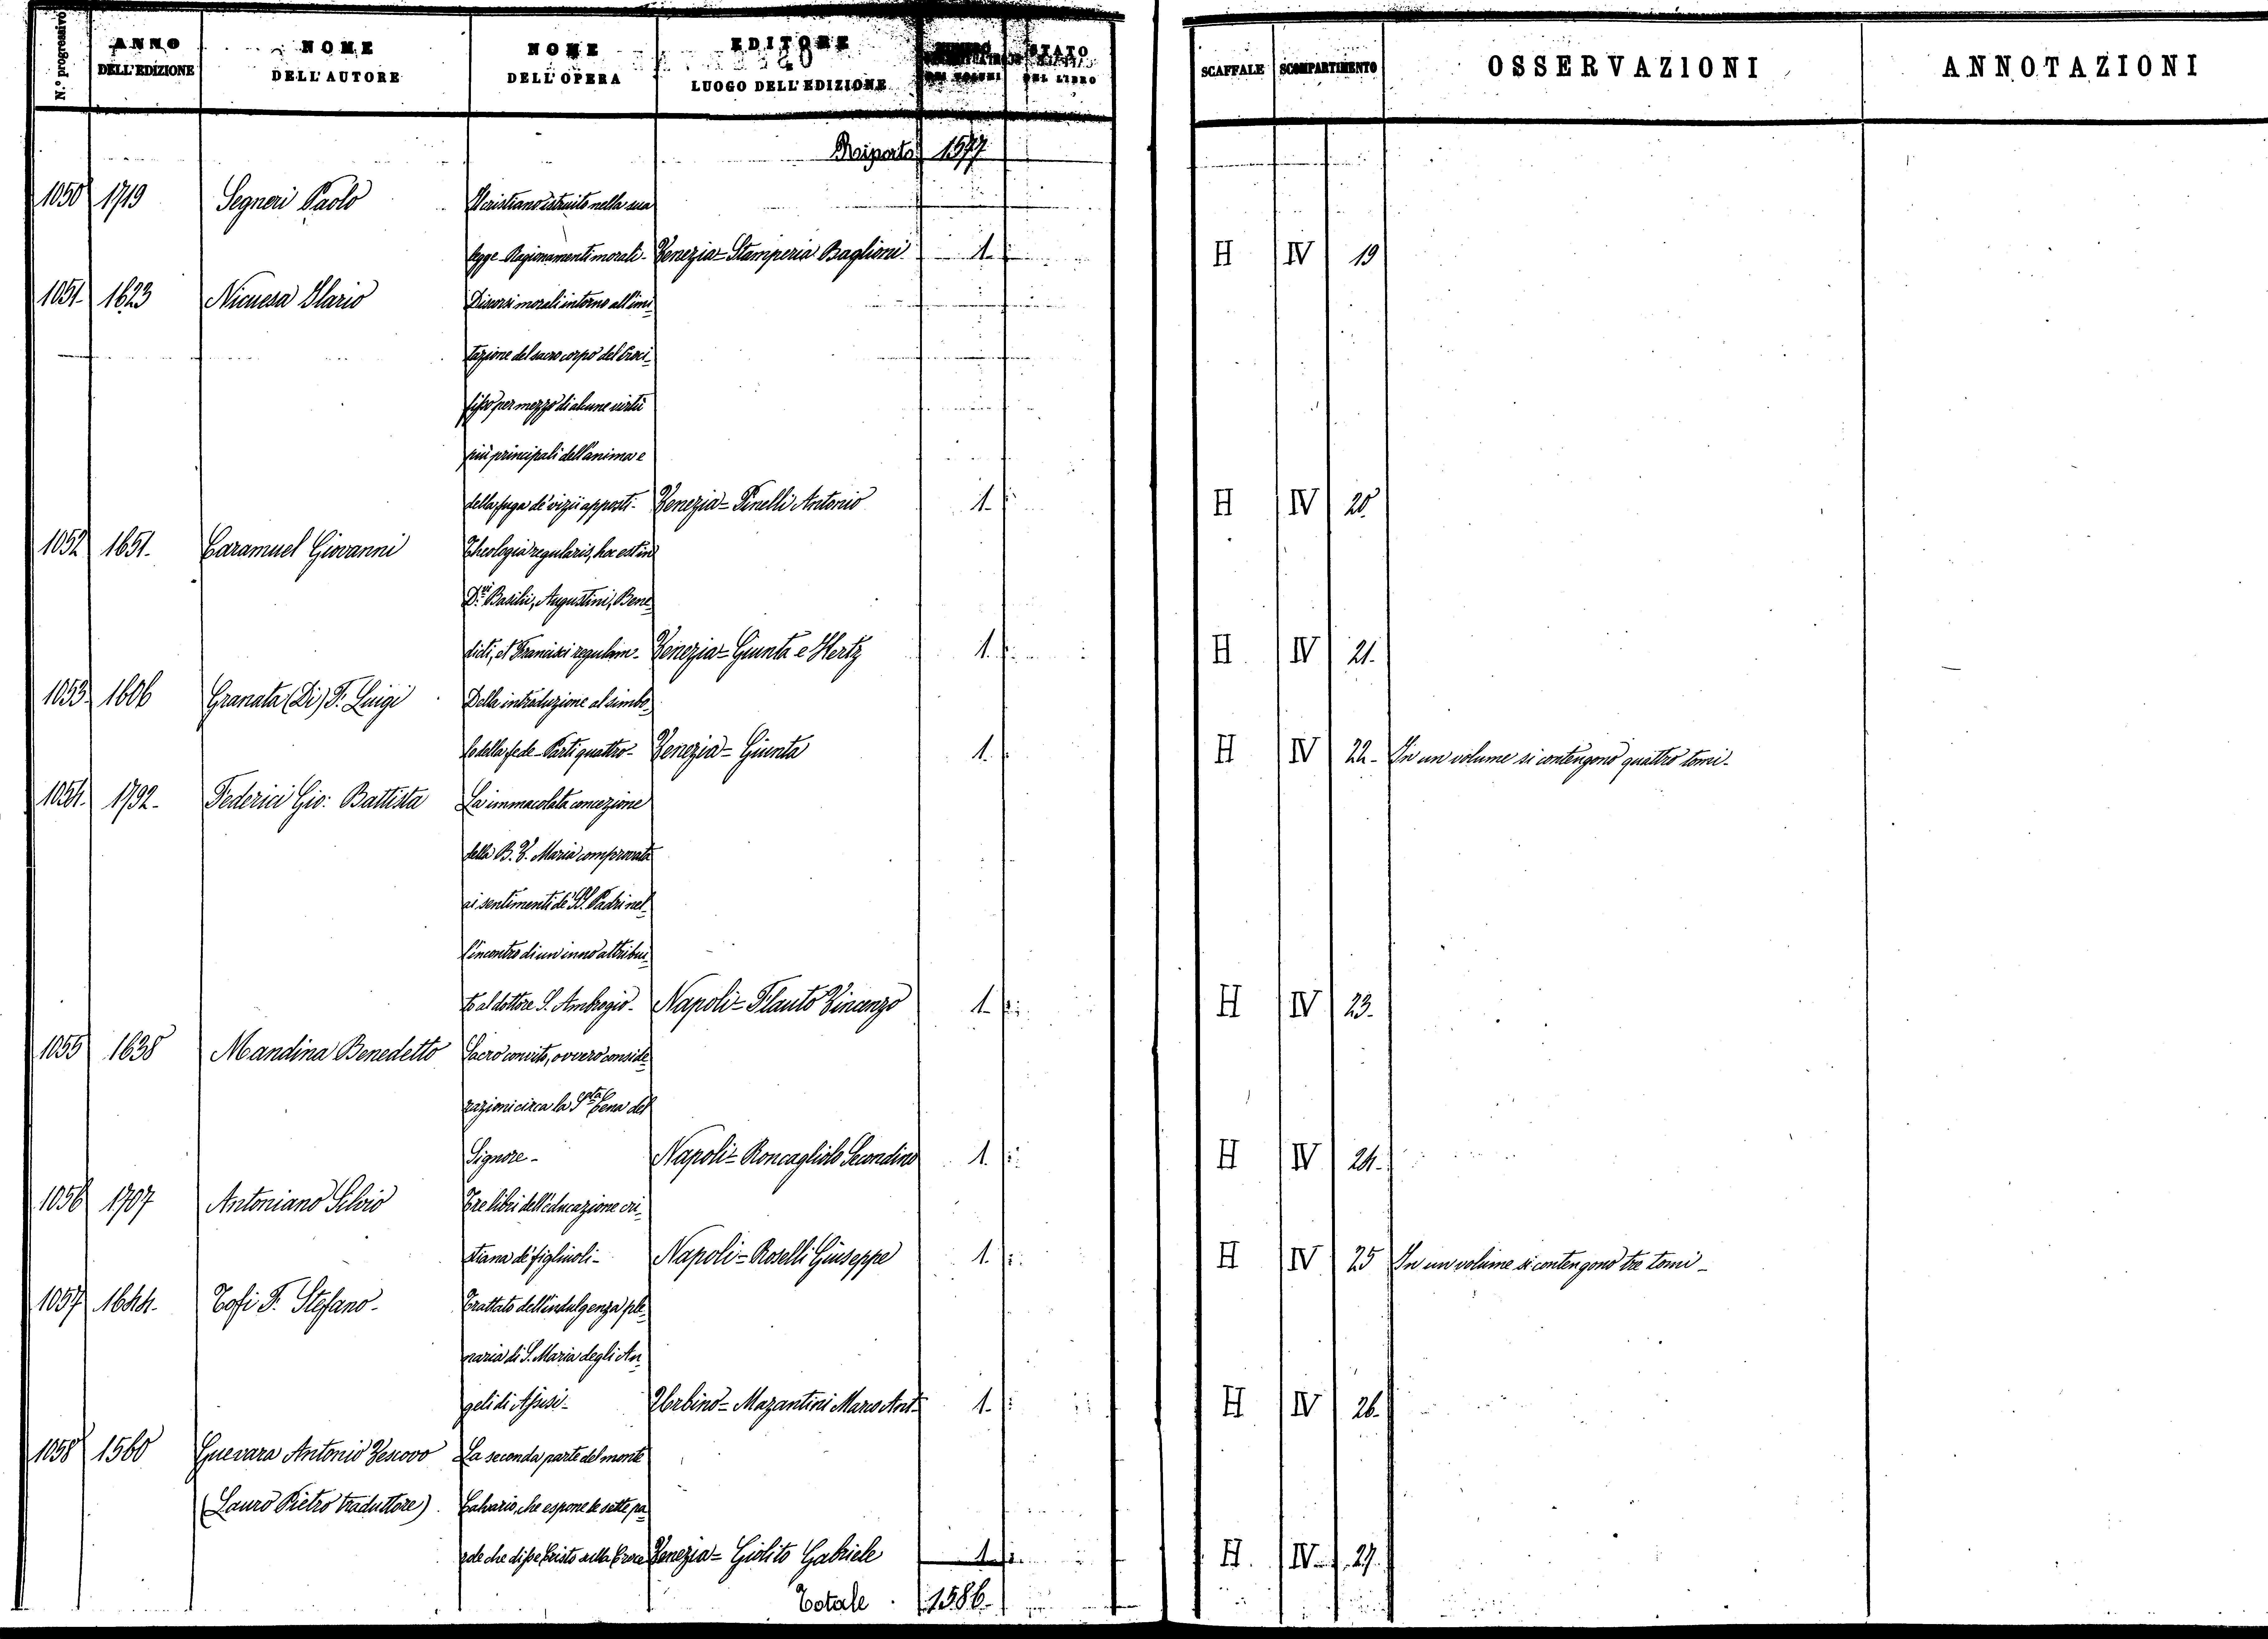 N.º progressivo
ANNO DELL'EDIZIONE
NOME DELL'AUTORE
NOME DELL'OPERA
EDITORE
LUOGO DELL'EDIZIONE
STATO DEL LIBRO
SCAFFALE SCOMPARTIMENTO OSSERVAZIONI ANNOTAZIONI
Riporto 1577
1050 1719 Segneri Paolo Il cristiano istruito nella sua
legge - Ragionamenti morali - Venezia = Stamperia Baglioni 1. H IV 19
1051. 1623 Nicuesa Ilario Discorsi morali intorno all'imi-
tazione del sacro corpo del Croci-
fisso per mezzo di alcune virtù
più principali dell'anima e
della fuga de' vizii apposti - Venezia = Pinelli Antonio 1. H IV 20
1052 1651. Caramuel Giovanni Theologia regularis, hoc est in
D. Basilii, Augustini, Bene-
dicti, et Francisci regulam - Venezia = Giunta e Hertz 1. H IV 21.
1053. 1606 Granata (Di) F. Luigi Della introduzione al simbo-
lo della fede - Parti quattro - Venezia = Giunta 1. H IV 22 - In un volume si contengono quattro tomi -
1054. 1792. Federici Gio: Battista La immacolata concezione
della B. V. Maria comprovata
ai sentimenti de' SS. Padri nel-
l'incontro di un inno attribui-
to al dottore S. Ambrogio - Napoli = Flauto Vincenzo 1. H IV 23.
1055 1638 Mandina Benedetto Sacro convito, ovvero conside-
razioni circa la Sta Cena del
Signore - Napoli = Roncagliolo Secondino 1. H IV 24.
1056 1707 Antoniano Silvio Tre libri dell'educazione cri-
stiana de' figliuoli - Napoli = Roselli Giuseppe 1. H IV 25 In un volume si contengono tre tomi -
1057 1644. Tofi F. Stefano - Trattato dell'indulgenza ple-
naria di S. Maria degli An-
geli di Assisi - Urbino = Mazantini Marco Ant. 1. H IV 26.
1058 1560 Guevara Antonio Vescovo La seconda parte del monte
(Lauro Pietro traduttore) Calvario, che espone le sette pa-
role che disse Cristo sulla Croce Venezia = Giolito Gabriele 1. H. IV 27.
Totale 1586